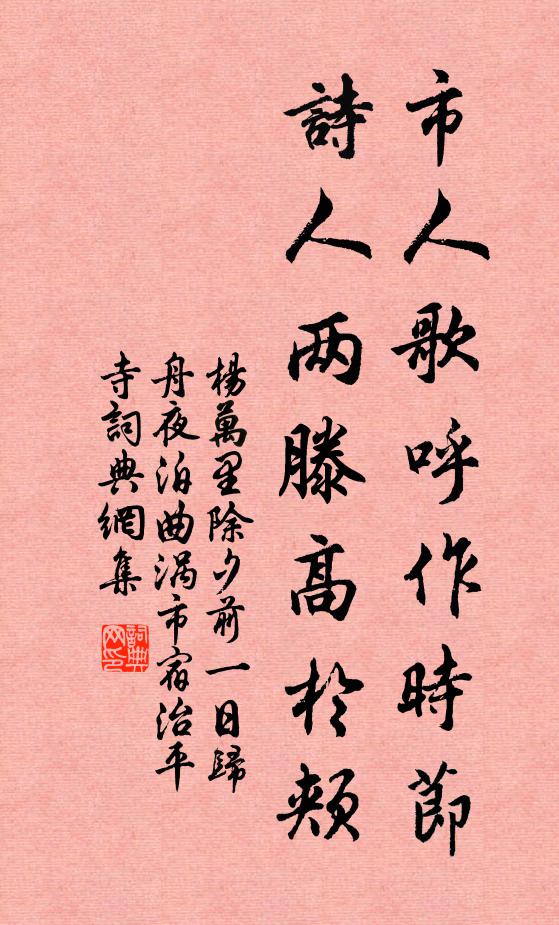 市人歌呼作時節
詩人两膝高於頰
楊萬里除夕前一日歸
舟夜泊曲渦市宿治平
寺詞典網集
詞典网印